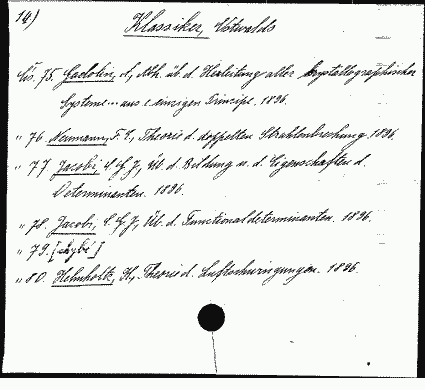 14)
Klassiker, Ostwalds
čís. 75. Gadolin, A., Abh. üb. d. Herleitung aller krystallographischer
Systeme... aus e. einzigen Principe. 1896.
" 76. Neumann, F. E., Theorie d. doppelten Strahlenbrechung. 1896.
" 77. Jacobi, C. G. J., Üb. d. Bildung u. d. Eigenschaften d.
Determinanten. 1896.
" 78. Jacobi, C. G. J., Üb. d. Functionaldeterminanten. 1896.
" 79. [chybí]
" 80. Helmholtz, H., Theorie d. Luftschwingungen. 1896.